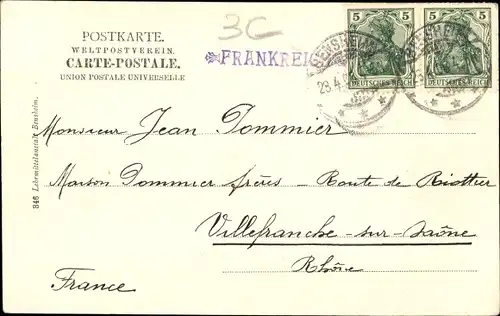 3C
POSTKARTE.
WELTPOSTVEREIN.
CARTE-POSTALE.
UNION POSTALE UNIVERSELLE
FRANKREICH
5 5 5 5
DEUTSCHES REICH DEUTSCHES REICH
BENSHEIM
Monsieur Jean Dommier
Maison Dommier frères - Route de Riottier
Villefranche-sur-Saône
Rhône
France
346 Lehrmittelanstalt Bensheim.